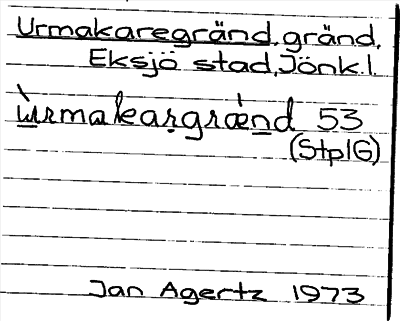 Urmakaregränd, gränd,
Eksjö stad, Jönk.l.
ùrmakaṛgræ̀nd 53
(StplG)
Jan Agertz 1973